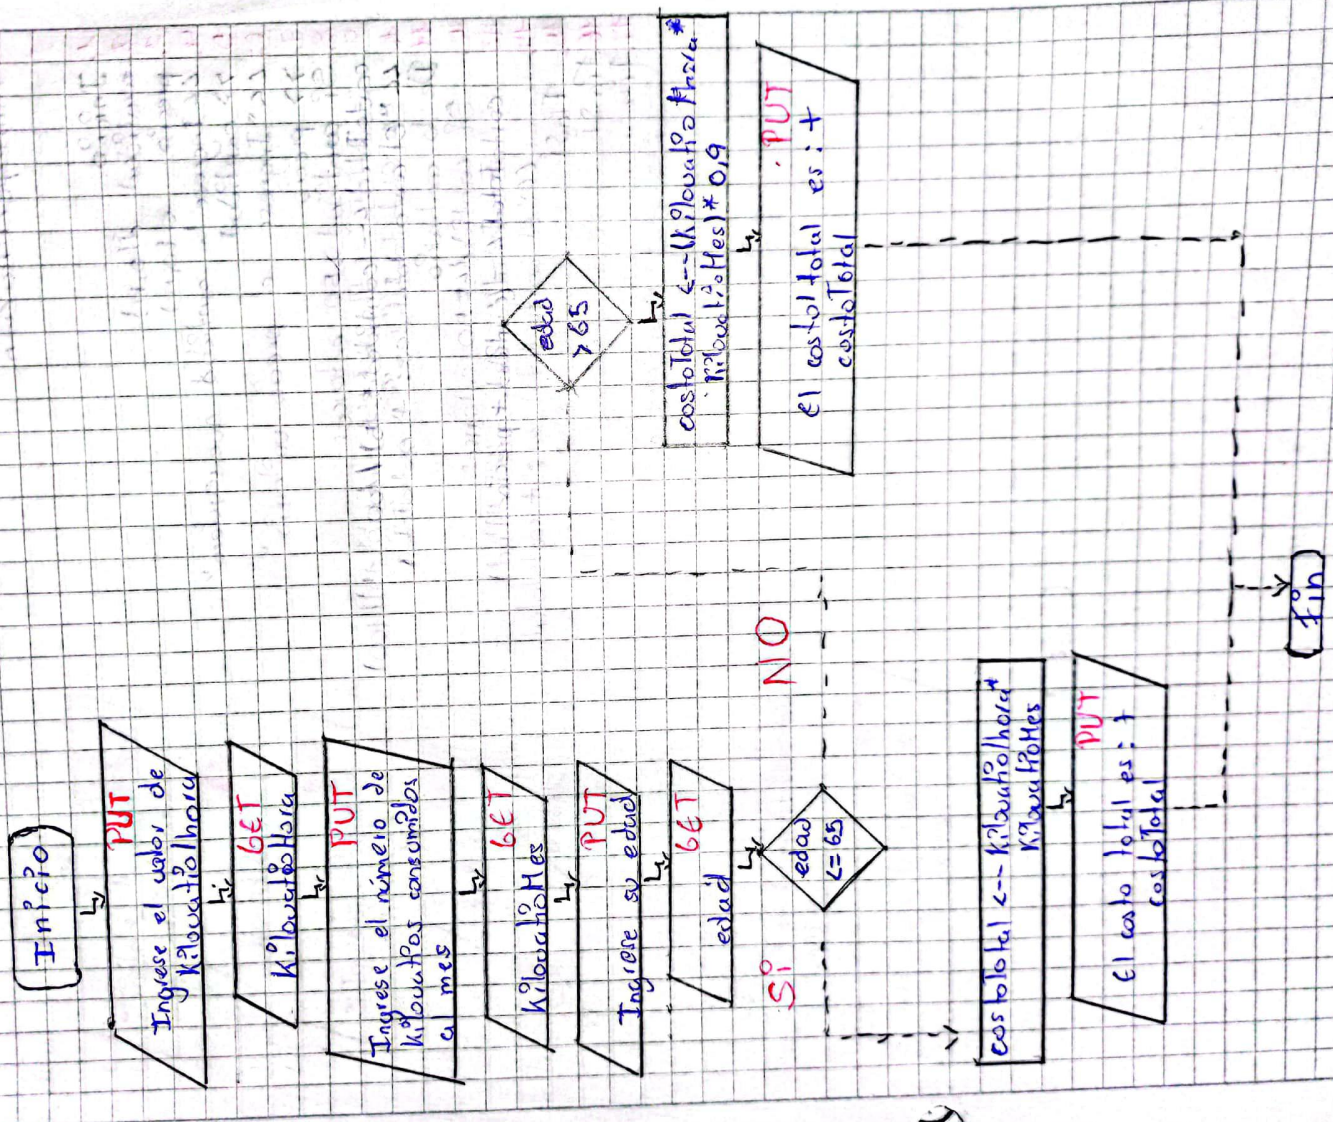 Inicio
PUT
Ingrese el valor de
kilovatio/hora
GET
KilovatioHora
PUT
Ingrese el número de
kilovatios consumidos
al mes
GET
KilovatioMes
PUT
Ingrese su edad
GET
edad
edad
<=65
SÍ
NO
costoTotal <-- kilovatio/hora*
KilovatioMes
PUT
El costo total es: +
costoTotal
edad
>65
costoTotal <--(kilovatioHora*
kilovatioMes)*0,9
PUT
El costo total es: +
costoTotal
Fin